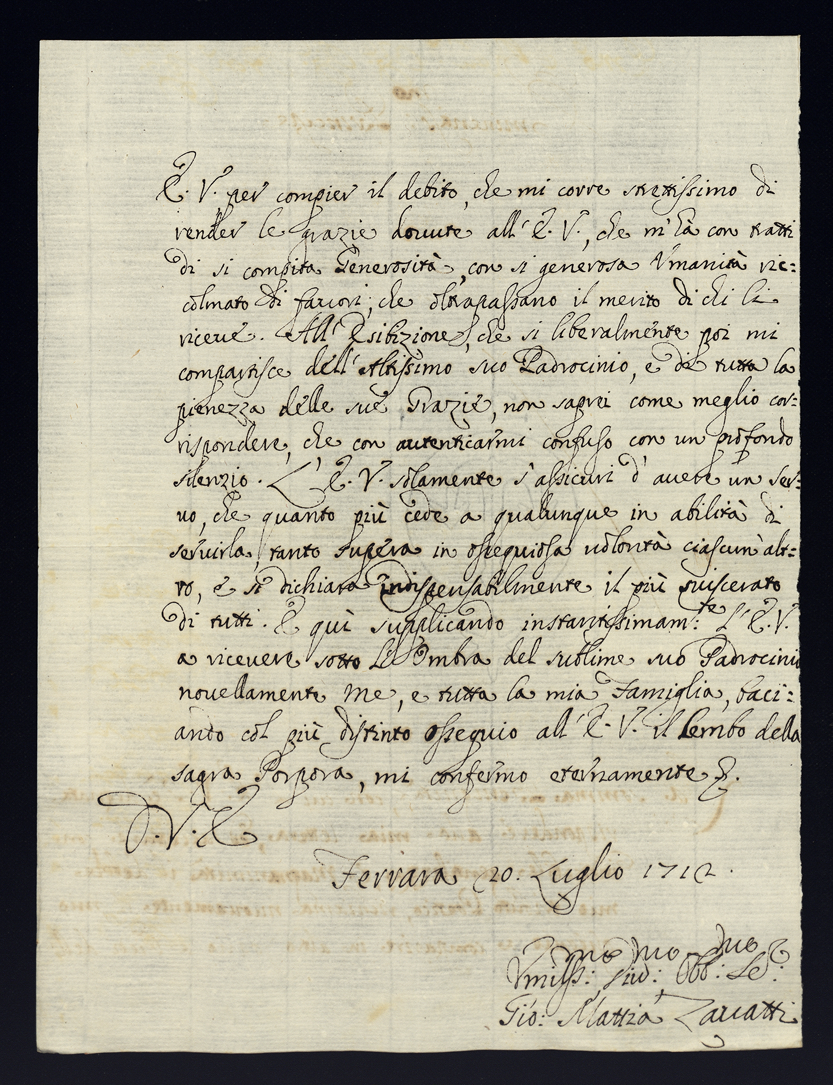 E. V. per compier il debito, che mi corre strettissimo di
render le grazie dovute all' E. V., che m'hà con tratti
di si compita Generosità, con si generosa Vmanità ric=
colmato di favori, che oltrapassano il merito di chi li
riceve. All' Esibizione, che si liberalmente poi mi
compartisce dell' Altissimo suo Padrocinio, e di tutta la
pienezza delle sue Grazie, non saprei come meglio cor=
rispondere, che con autenticarmi confuso con un profondo
silenzio. L' E. V. solamente s'assicuri d' avere un ser=
vo, che quanto più cede a qualunque in abilità di
servirla, tanto supera in ossequiosa volontà ciascun' alt=
ro, e si dichiara indispensabilmente il più sviscerato
di tutti. E quì supplicando instantissimam:te L' E. V.
a ricevere sotto L'Ombra del sublime suo Padrocinio
novellamente Me, e tutta la mia Famiglia, baci=
ando col più distinto ossequio all' E. V. il Lembo della
sagra Porpora, mi confermo eternamente
D. V. E
Ferrara 20. Luglio 1712.
mo mo mo
Vmiliss: Obb:
Gio: Mattia Zavatti